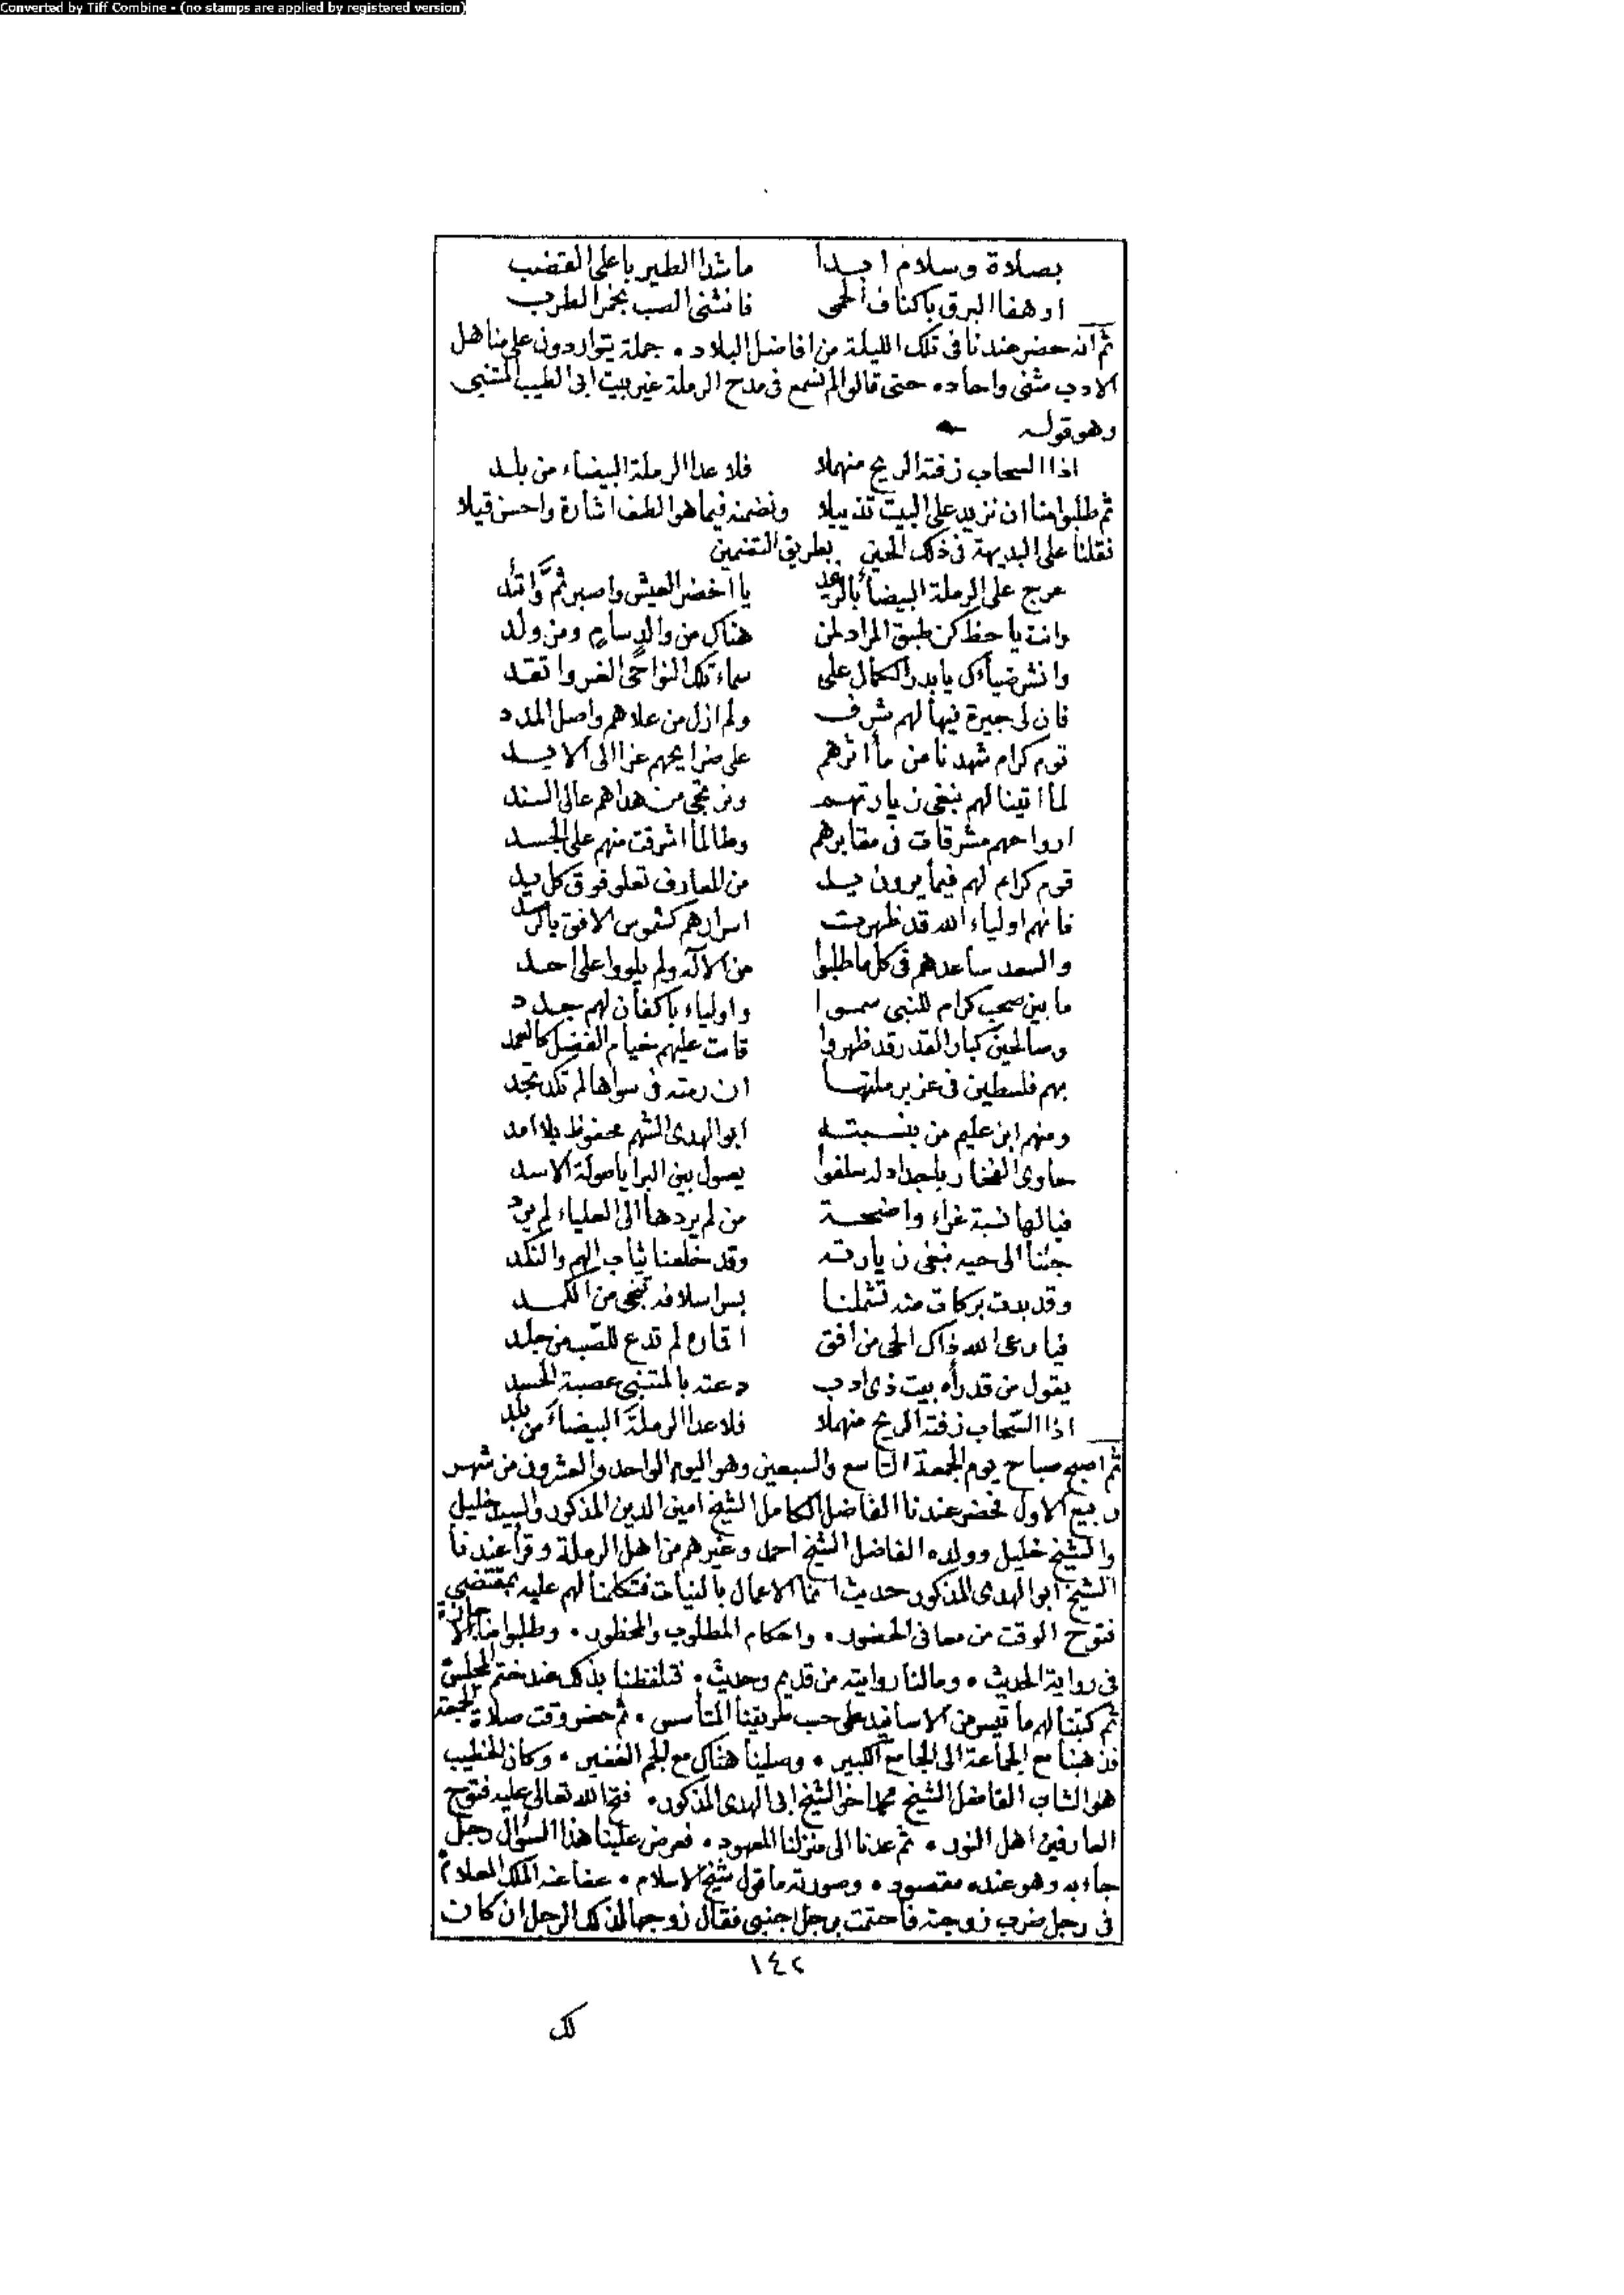 Converted by Tiff Combine - (no stamps are applied by registered version)
بصلاة وسلام ابدا ما شدا الطير باعلى القضب
او هفا البرق باكناف الحمى فانثنى الصب بخمر الطرب
ثم انه حضر عندنا فى تلك الليلة من افاضل البلاد • جملة يتواردون على مناهل
الادب مثنى واحاد • حتى قالوا لم نسمع فى مدح الرملة غير بيت ابى الطيب المتنبى
وهو قوله
اذا السحاب زفته الريح منهملا فلا عدا الرملة البيضاء من بلد
ثم طلبوا منا ان نزيد على البيت تذييلا ونضمنه فيما هو الطف اشارة واحسن قيلا
فقلنا على البديهة فى ذلك الحين بطريق التضمين
عرج على الرملة البيضاء بالرغد يا اخضر العيش واصبر ثم واتئد
وانت يا حظ كن طبق المراد لمن هناك من والد سام ومن ولد
وانشر ضياءك يا بدر الكمال على سماء تلك النواحى الغر واتقد
فان لى جيرة فيها لهم شرف ولم ازل من علاهم واصل المدد
قوم كرام شهدنا من مآثرهم على ضرايحهم عزا الى الابد
لما اتينا لهم نبغى زيارتهم ونرتجى من هداهم عالى السند
ارواحهم مشرقات فى مقابرهم وطالما اشرقت منهم على الجسد
قوم كرام لهم فيما يرون يد من المعارف تعلو فوق كل يد
فانهم اولياء الله قد ظهرت اسرارهم كشموس الافق بالرصد
والسعد ساعدهم فى كل ما طلبوا من الاله ولم يلووا على احد
ما بين صحب كرام للنبى سموا واولياء باكفان لهم جدد
وصالحين كبار القدر قد ظهروا قامت عليهم خيام الفضل كالعمد
بهم فلسطين فى عز برملتها ان رمته فى سواها لم تكد تجد
ومنهم ابن عليم من بنسبته ابو الهدى الشهم محفوظ بلا امد
حاوى الفخار باجداد له سلفوا يصول بين البرايا صولة الاسد
فيالها نسبة غراء واضحة من لم يردها الى العلياء لم يرد
جئنا الى حيه نبغى زيارته وقد خلعنا ثياب الهم والنكد
وقد بدت بركات منه تشملنا بسر اسلافه تنجى من الكمد
فيا رعى الله ذاك الحى من افق اقماره لم تدع للصب من جلد
يقول من قد رآه بيت ذى ادب دعته بالمتنبى عصبة الحسد
اذا السحاب زفته الريح منهملا فلا عدا الرملة البيضاء من بلد
ثم اصبح صباح يوم الجمعة التاسع والسبعين وهو اليوم الواحد والعشرون من شهر
ربيع الاول فحضر عندنا الفاضل الكامل الشيخ امين الدين المذكور والسيد خليل
والشيخ خليل وولده الفاضل الشيخ احمد وغيرهم من اهل الرملة وقرأ عندنا
الشيخ ابو الهدى المذكور حديث انما الاعمال بالنيات فتكلمنا لهم عليه بمقتضى
فتوح الوقت من معانى الحضور • واحكام المطلوب والمحظور • وطلبوا منا الاجازة
فى رواية الحديث • ومالنا روايته من قديم وحديث • فتلفظنا بذلك عند ختم المجلس
ثم كتبنا لهم ما تيسر من الاسانيد على حسب طريقنا المتأسس • ثم حضر وقت صلاة الجمعة
فذهبنا مع الجماعة الى الجامع الكبير • وصلينا هناك مع الجم الغفير • وكان الخطيب
هو الشاب الفاضل الشيخ محمد اخو الشيخ ابى الهدى المذكور • فتح الله تعالى عليه فتوح
العارفين اهل النور • ثم عدنا الى منزلنا المعهود • فعرض علينا هذا السؤال رجل
جاء به وهو عنده مقصود • وصورته ما قول شيخ الاسلام • عفا عنه الملك العلام
فى رجل ضرب زوجته فاحتمت برجل اجنبى فقال زوجها لذلك الرجل ان كان
١٤٢
لك